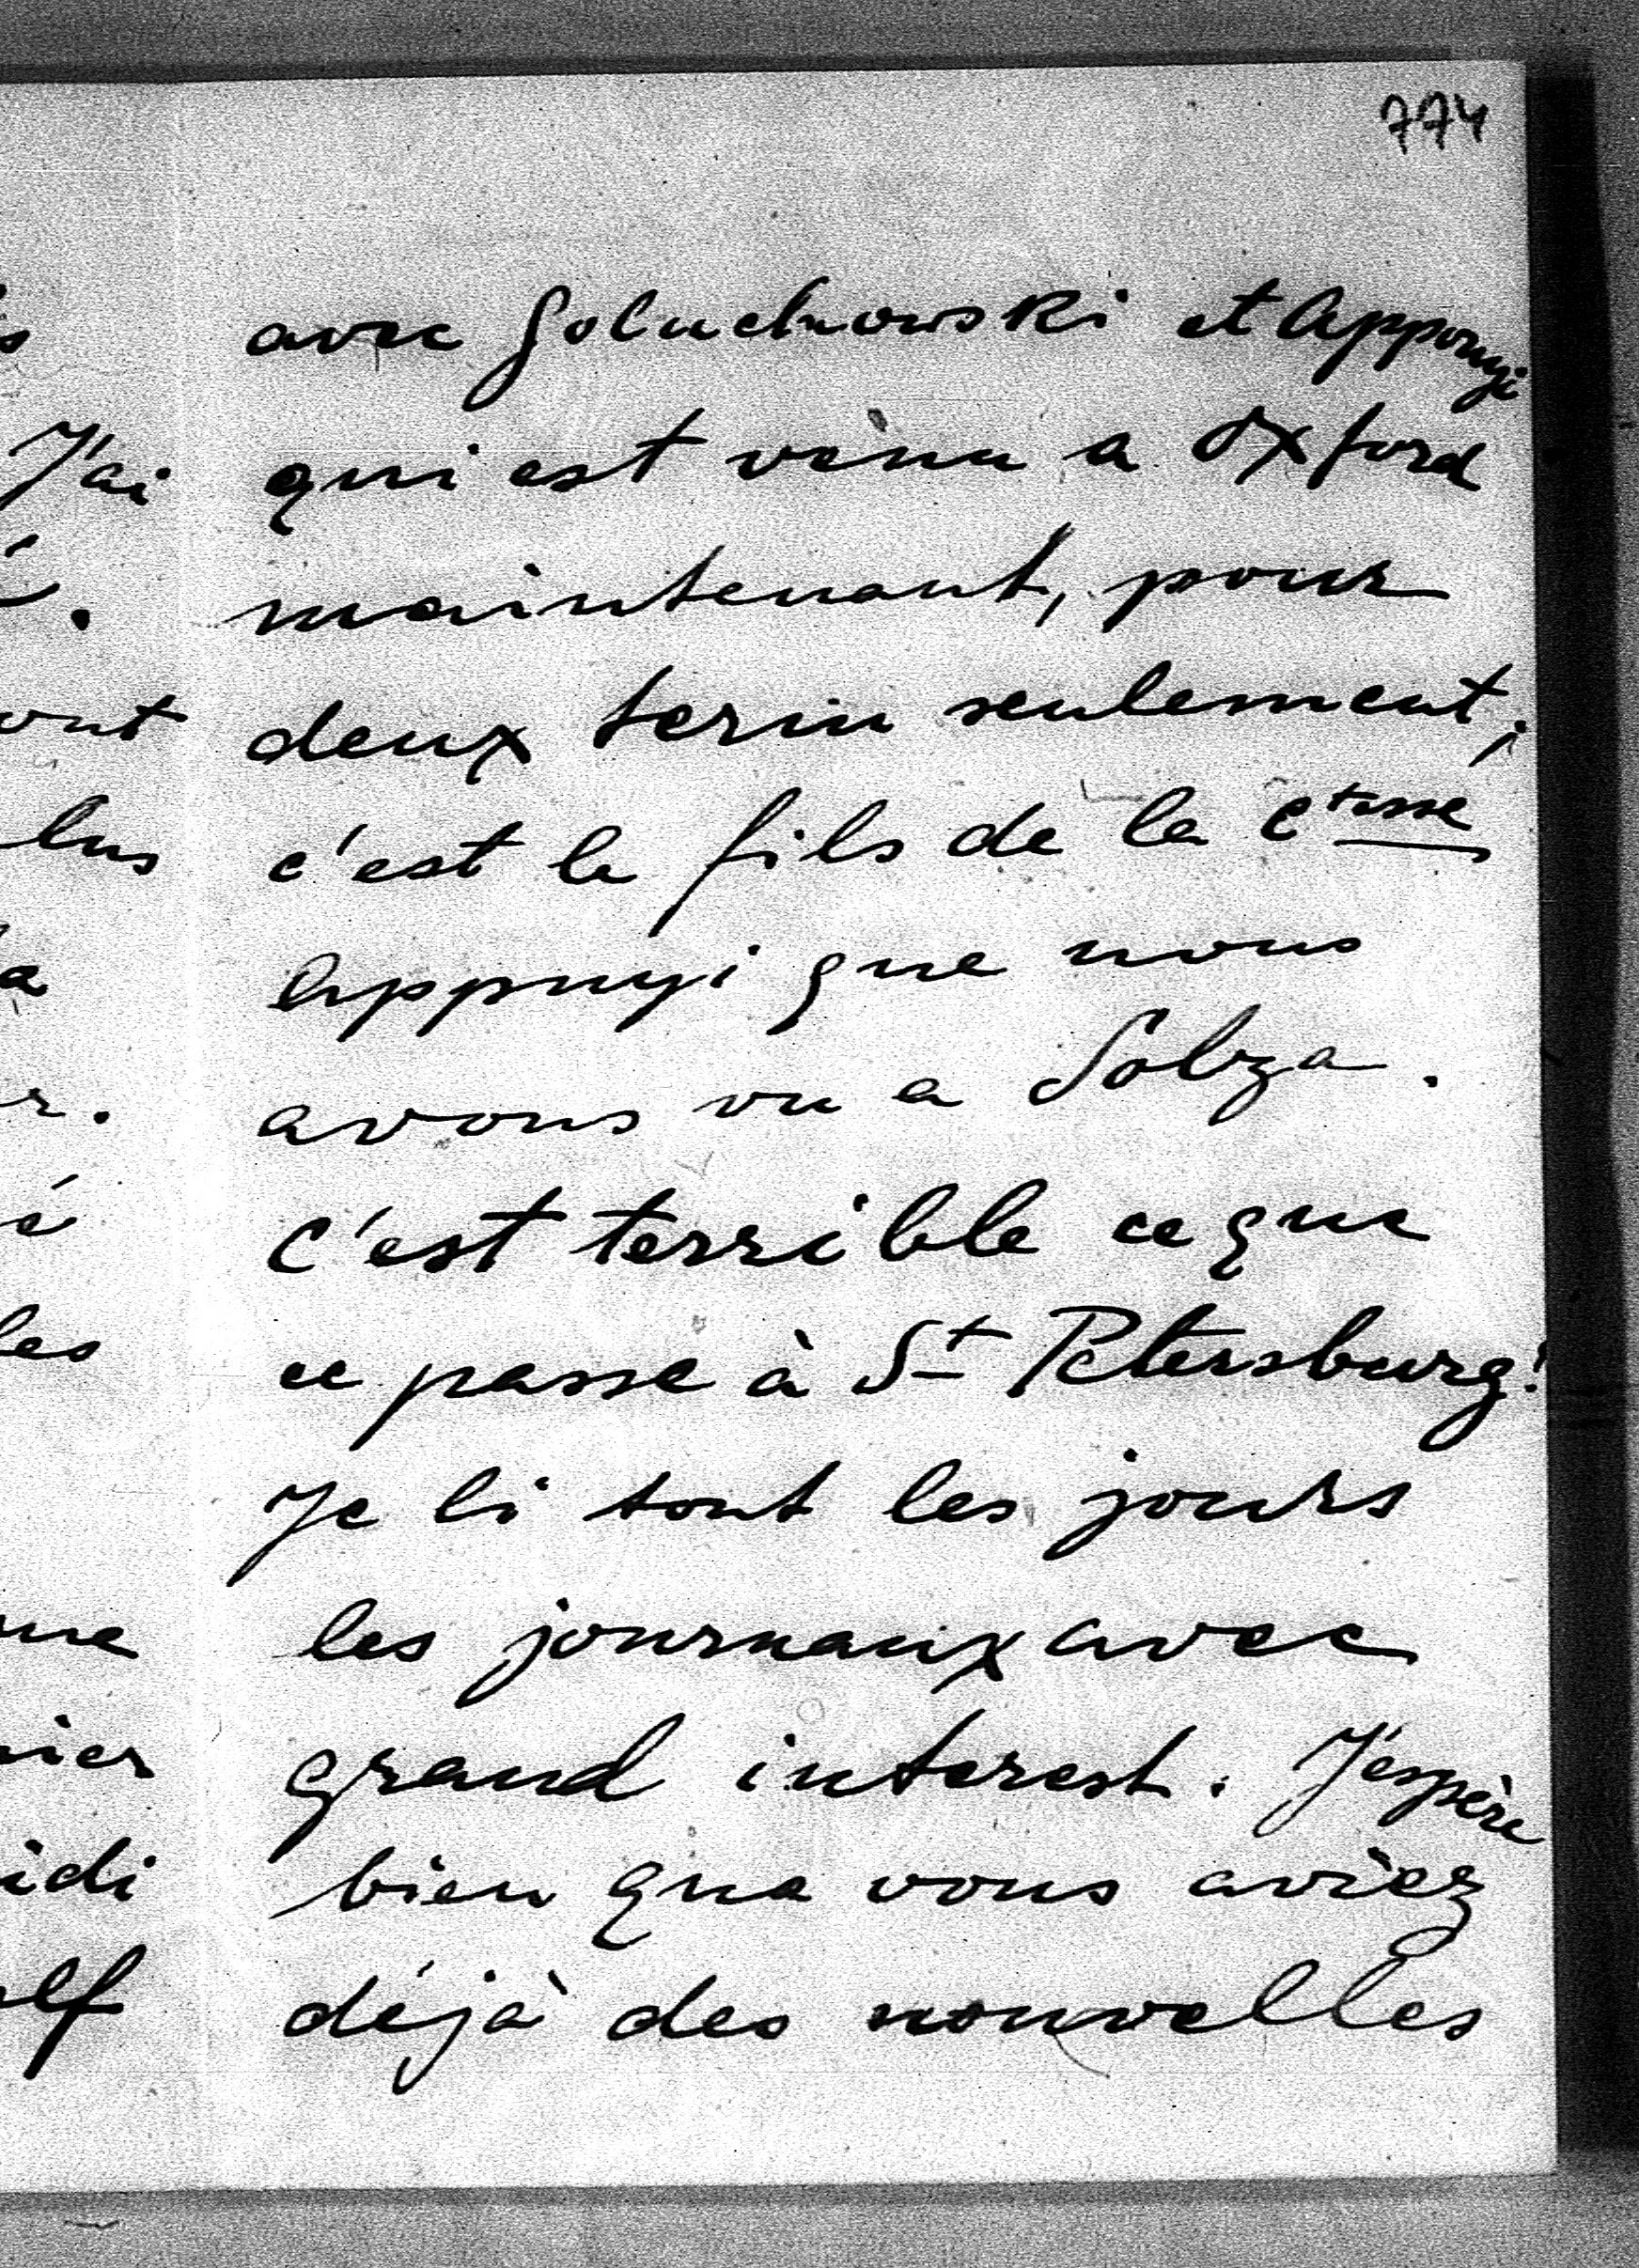 774
avec Goluchowski et Apponyi
qui est venu a Oxford
maintenant, pour
deux term seulement,
c'est le fils de la Ctesse
Apponyi que nous
avons vu a Solza.
C'est terrible ce que
ce passe à St Petersburg!
Je li tout les jours
les journaux avec
grand interest. J'éspère
bien que vous aviez
déjà des nouvelles
J'ai
ont
lus
les